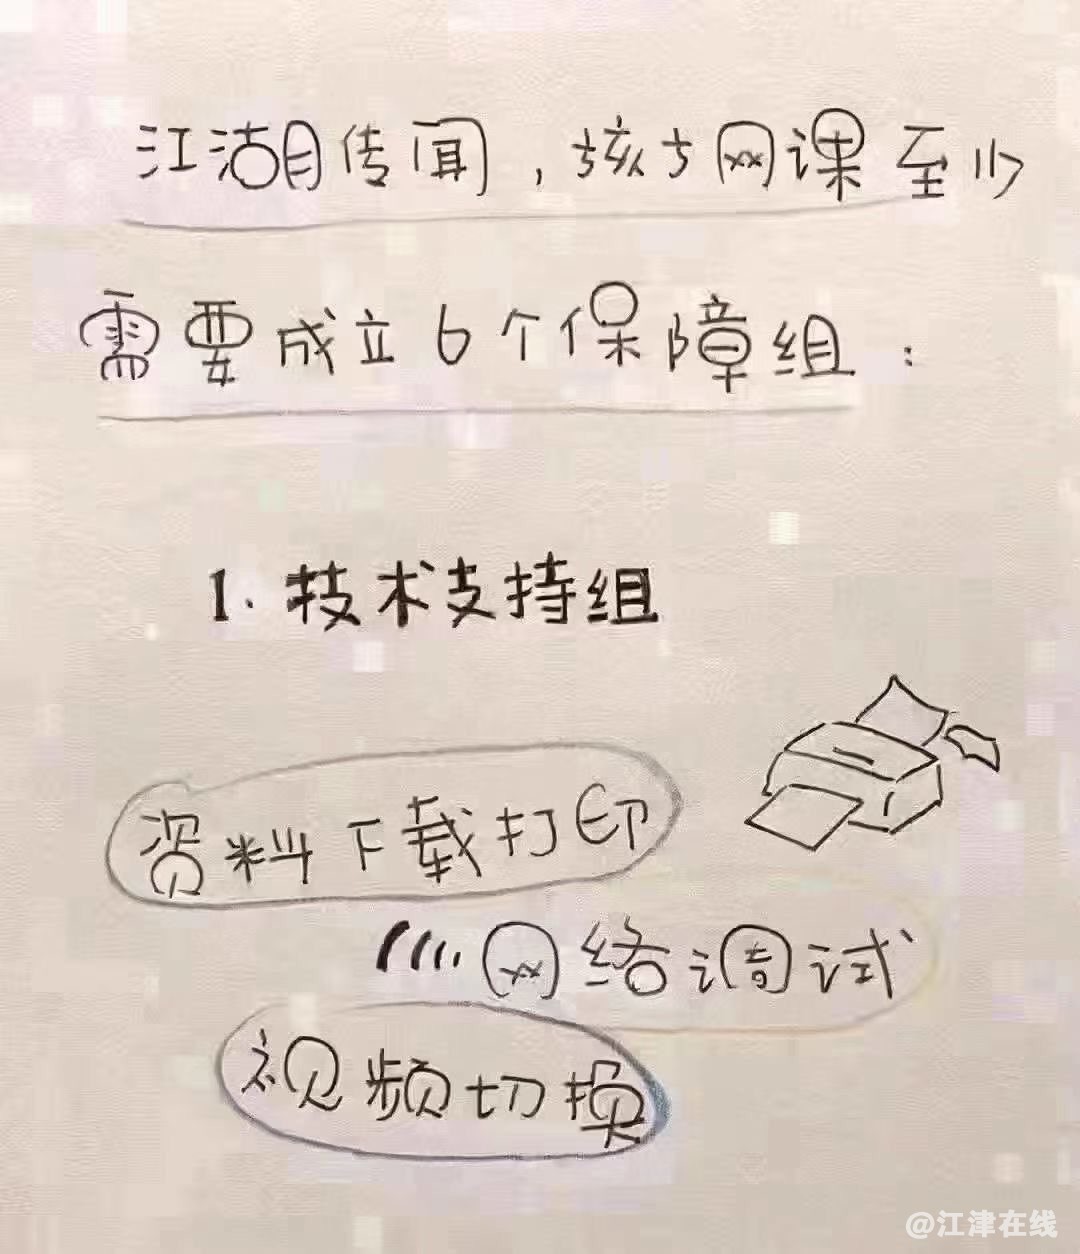 江湖传闻，孩子网课至少
需要成立6个保障组：
1. 技术支持组
资料下载打印
网络调试
视频切换
@江津在线